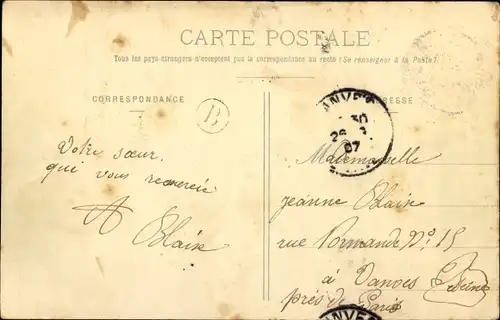 CARTE POSTALE
Tous les pays étrangers n'acceptent pas la correspondance au recto (Se renseigner à la Poste)
CORRESPONDANCE
B
ADRESSE
30
26
07
Votre sœur
qui vous remercie
A Blaise
Mademoiselle
Jeanne Blaise
rue Normande N° 15
à Vanves Seine
près de Paris